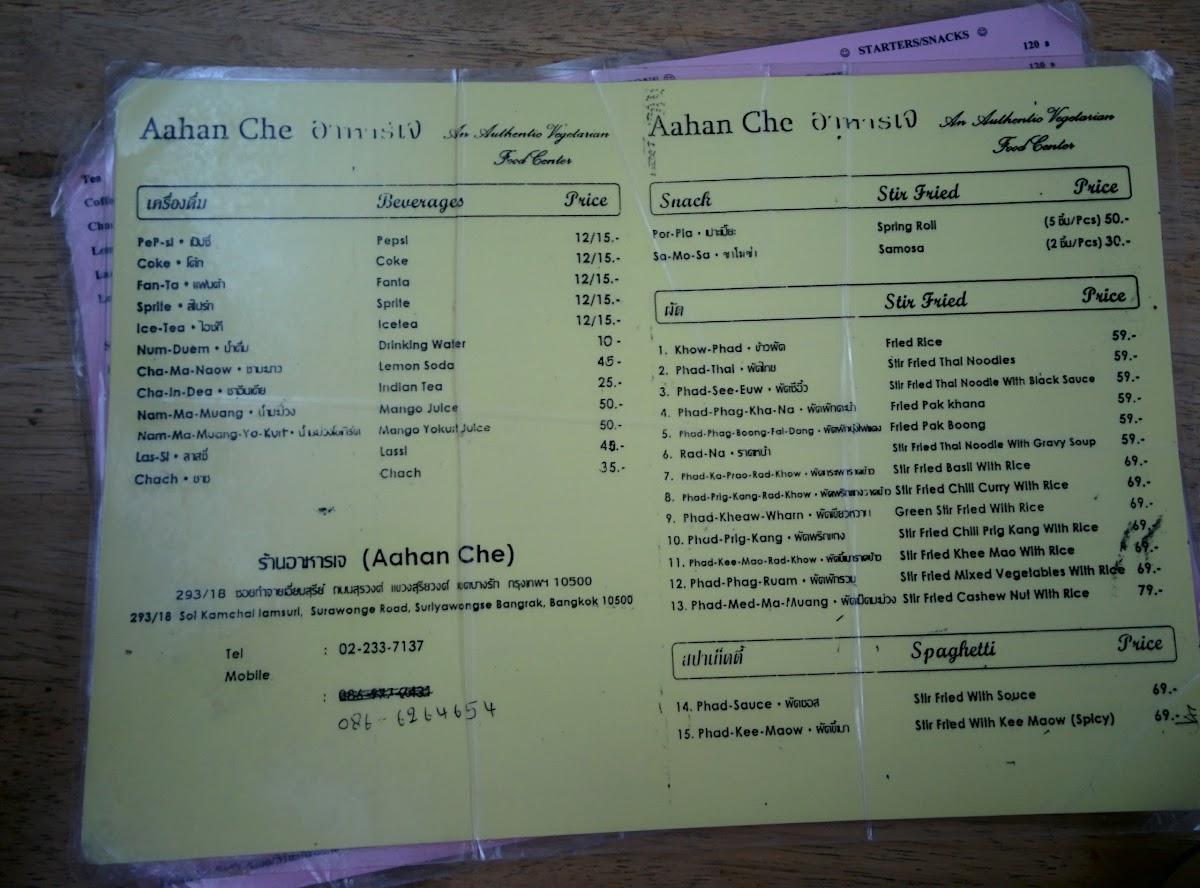 ☺ STARTERS/SNACKS ☺
120 ฿
120 ฿
Tea
Aahan Che อาหารเจ An Authentic Vegetarian
Food Center
เครื่องดื่ม Beverages Price
PeP-si • เป๊บซี่ Pepsi 12/15.-
Coke • โค้ก Coke 12/15.-
Fan-Ta • แฟนต้า Fanta 12/15.-
Sprite • สไปร์ท Sprite 12/15.-
Ice-Tea • ไอซที Icetea 12/15.-
Num-Duem • น้ำดื่ม Drinking Water 10 -
Cha-Ma-Naow • ชามะนาว Lemon Soda 45-
Cha-In-Dea • ชาอินเดีย Indian Tea 25.-
Nam-Ma-Muang • น้ำมะม่วง Mango Juice 50.-
Nam-Ma-Muang-Yo-Kurt • น้ำมะม่วงโยเกิร์ต Mango Yokurt Juice 50.-
Las-Si • ลาสซี่ Lassi 45.-
Chach • ชาช Chach 35.-
ร้านอาหารเจ (Aahan Che)
293/18 ซอยกำจายเอี่ยมสุรีย์ ถนนสุรวงศ์ แขวงสุริยวงศ์ เขตบางรัก กรุงเทพฯ 10500
293/18 Soi Kamchai Iamsuri, Surawonge Road, Suriyawongse Bangrak, Bangkok 10500
Tel : 02-233-7137
Mobile
:
086-6264654
Aahan Che อาหารเจ An Authentic Vegetarian
Food Center
Snack Stir Fried Price
Por-Pia • เปาะเปี๊ยะ Spring Roll (5 ชิ้น/Pcs) 50.-
Sa-Mo-Sa • ซาโมซ่า Samosa (2 ชิ้น/Pcs) 30.-
ผัด Stir Fried Price
1. Khow-Phad • ข้าวผัด Fried Rice 59.-
2. Phad-Thai • ผัดไทย Stir Fried Thai Noodles 59.-
3. Phad-See-Euw • ผัดซีอิ๊ว Stir Fried Thai Noodle With Black Sauce 59.-
4. Phad-Phag-Kha-Na • ผัดผักคะน้า Fried Pak khana 59.-
5. Phad-Phag-Boong-Fai-Dang • ผัดผักบุ้งไฟแดง Fried Pak Boong 59.-
6. Rad-Na • ราดหน้า Stir Fried Thai Noodle With Gravy Soup 59.-
7. Phad-Ka-Prao-Rad-Khow • ผัดกระเพาราดข้าว Stir Fried Basil With Rice 69.-
8. Phad-Prig-Kang-Rad-Khow • ผัดพริกแกงราดข้าว Stir Fried Chili Curry With Rice 69.-
9. Phad-Kheaw-Wharn • ผัดเขียวหวาน Green Stir Fried With Rice 69.-
10. Phad-Prig-Kang • ผัดพริกแกง Stir Fried Chili Prig Kang With Rice 69,-
11. Phad-Kee-Mao-Rad-Khow • ผัดขี้เมาราดข้าว Stir Fried Khee Mao With Rice 69.-
12. Phad-Phag-Ruam • ผัดผักรวม Stir Fried Mixed Vegetables With Rice 69.-
13. Phad-Med-Ma-Muang • ผัดเม็ดมะม่วง Stir Fried Cashew Nut With Rice 79.-
สปาเก็ตตี้ Spaghetti Price
14. Phad-Sauce • ผัดซอส Stir Fried With Souce 69.-
15. Phad-Kee-Maow • ผัดขี้เมา Stir Fried With Kee Maow (Spicy) 69.-